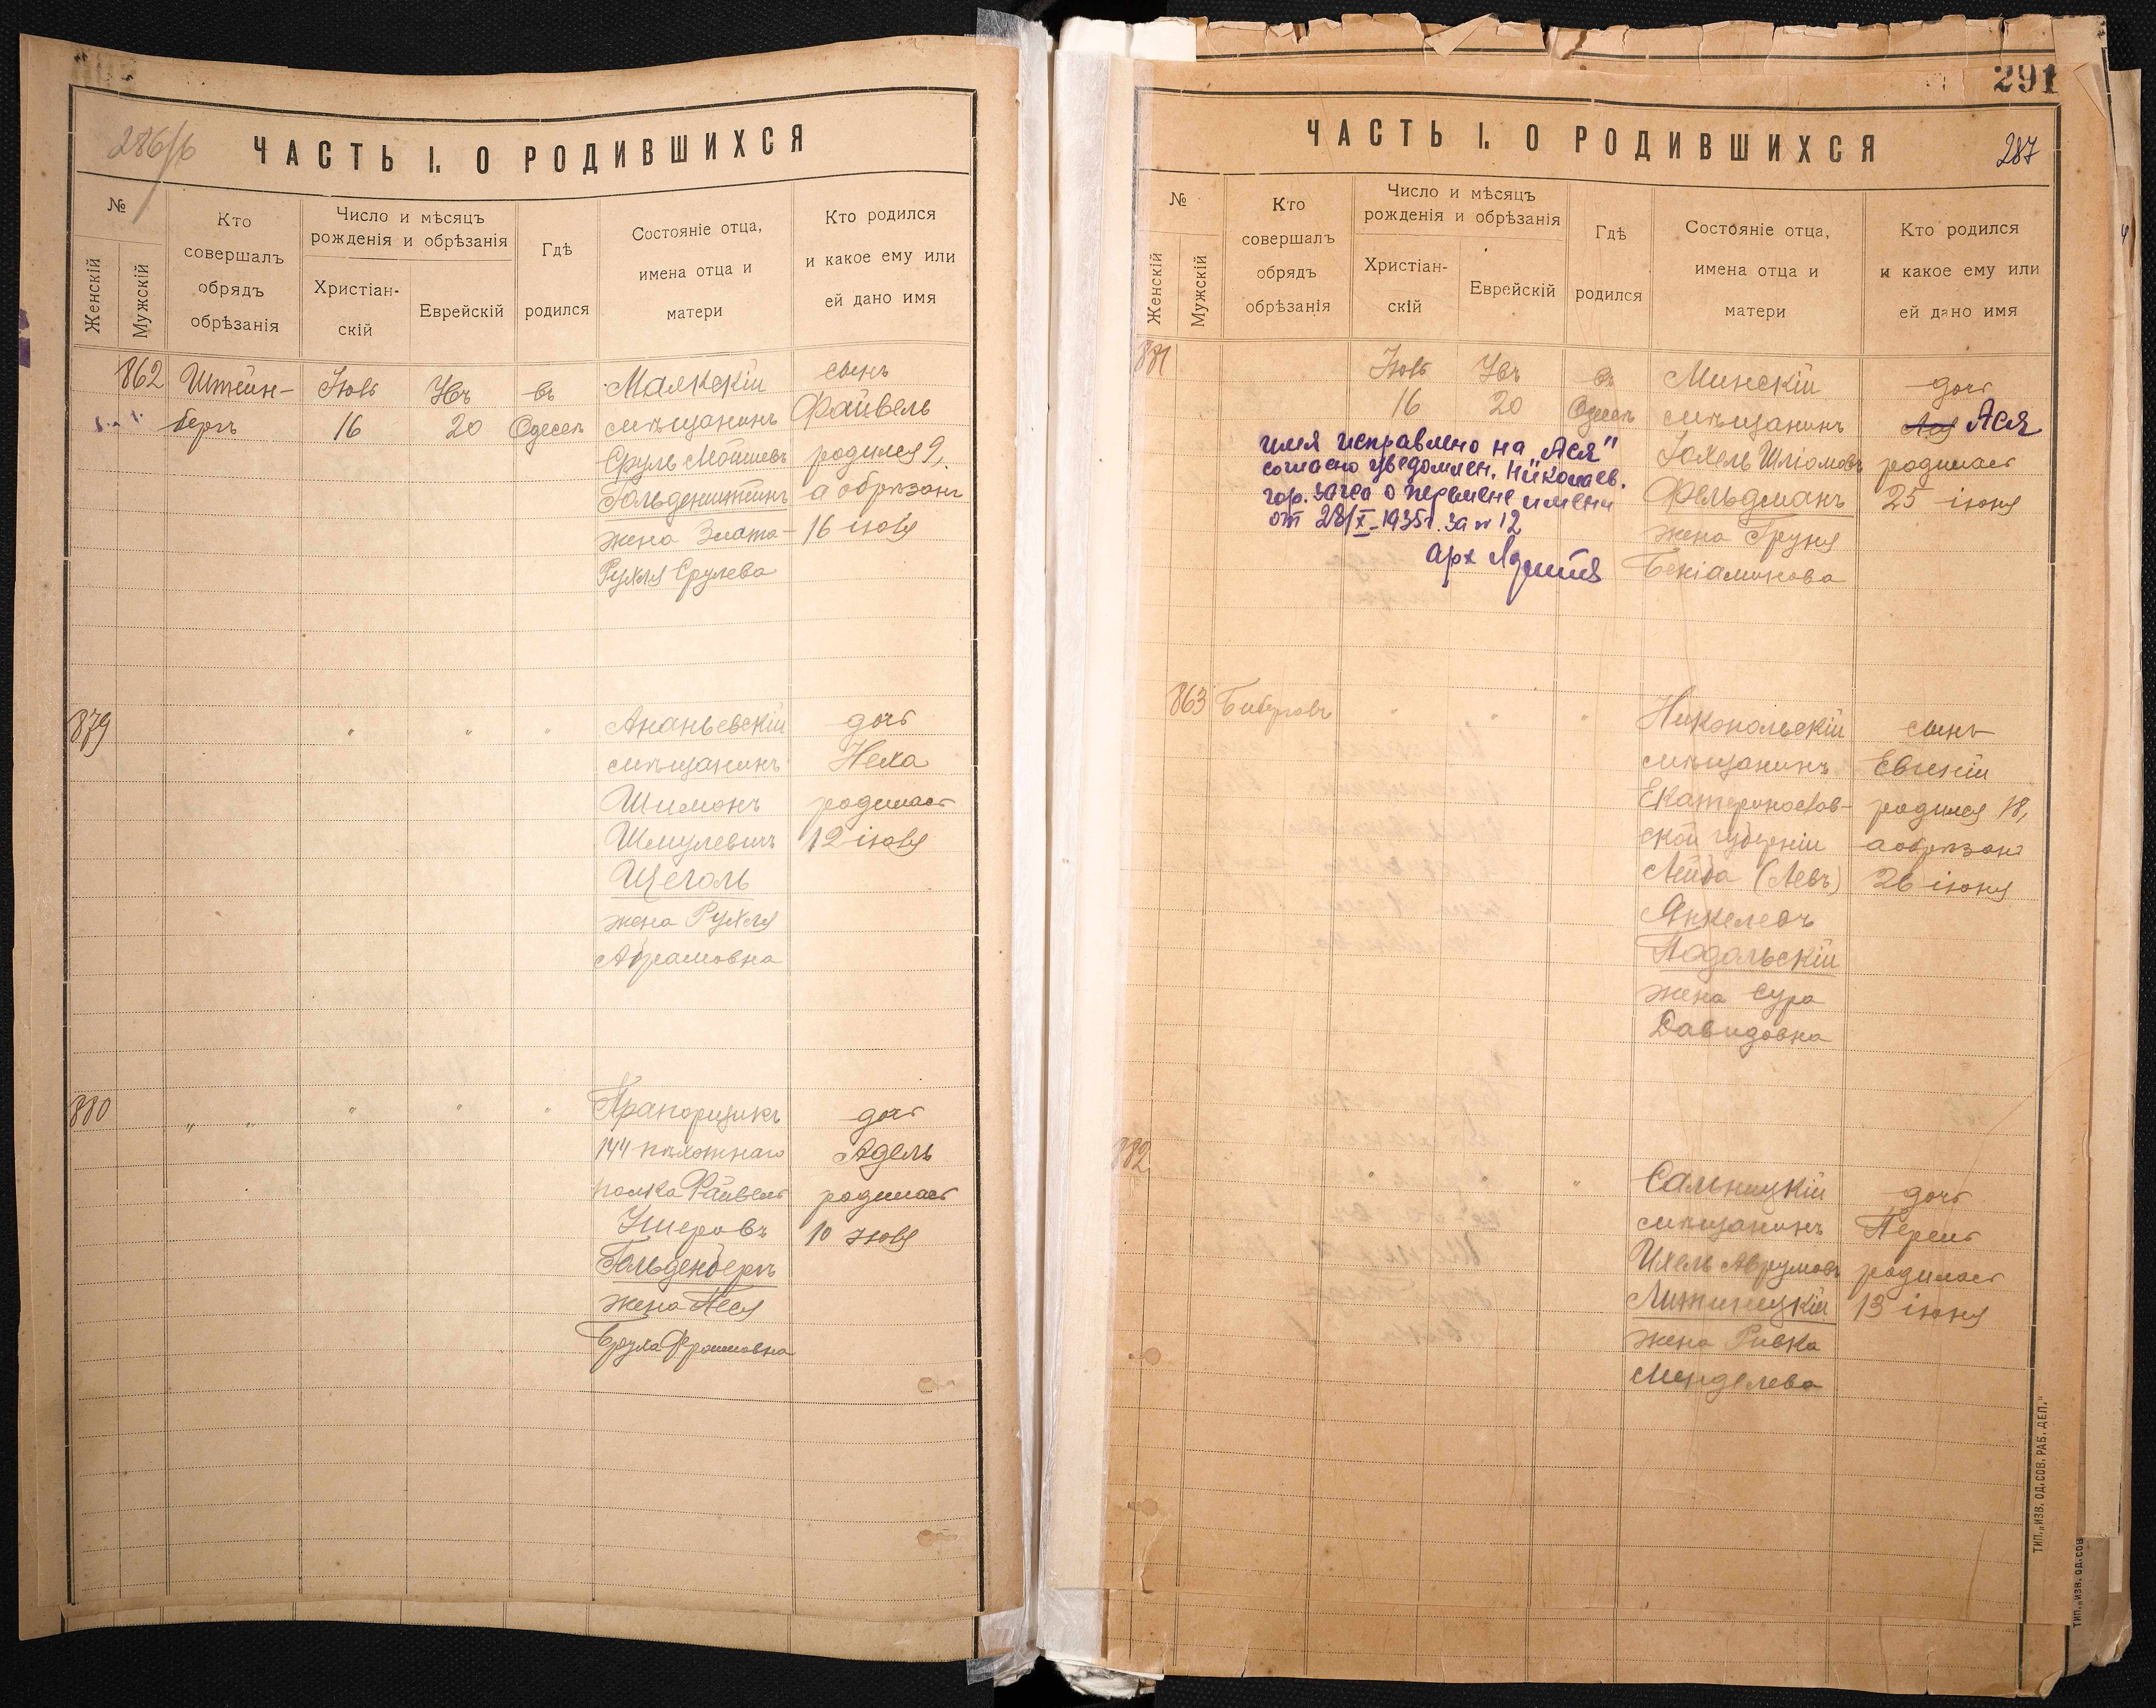 286/б
ЧАСТЬ I. О РОДИВШИХСЯ
№
Женскій
Мужскій
Кто
совершалъ
обрядъ
обрѣзанія
Число и мѣсяцъ
рожденія и обрѣзанія
Христіан-
скій
Еврейскій
Гдѣ
родился
Состояніе отца,
имена отца и
матери
Кто родился
и какое ему или
ей дано имя
862
Штейн-
бергъ
Іюль
16
20
въ
Одессѣ
Маякскій
мѣщанинъ
Сруль Мошковъ
Гольденштейнъ
жена Злата-
Рухля Срулева
сынъ
Файвель
родился 9,
а обрѣзанъ
16 іюля
879
" " "
Ананьевскій
мѣщанинъ
Шимонъ
Шмулевичъ
Щеголь
жена Рухля
Абрамовна
дочь
Неха
родилась
12 іюля
880
" " " " "
Прапорщикъ
144 пѣхотнаго
полка Файвель
Ушеровъ
Гольденбергъ
жена Песя
дочь
Адель
родилась
10 іюля
291
287
ЧАСТЬ I. О РОДИВШИХСЯ
№
Женскій
Мужскій
Кто
совершалъ
обрядъ
обрѣзанія
Число и мѣсяцъ
рожденія и обрѣзанія
Христіан-
скій
Еврейскій
Гдѣ
родился
Состояніе отца,
имена отца и
матери
Кто родился
и какое ему или
ей дано имя
881
Іюль
16
20
въ
Одессѣ
Минскій
мѣщанинъ
Іохель Шліомовъ
Фельдманъ
жена Груня
Беніаминова
дочь
Ася
родилась
25 іюня
имя исправлено на „Ася"
согласно уведомлен. Николаев.
гор. загса о перемене имени
от 28/X-1935г. за № 12
арх
863
" " "
Никопольскій
мѣщанинъ
Екатеринослав-
ской губерніи
Лейба (Левъ)
Янкелевъ
Подольскій
жена Сура
Давидовна
сынъ
Евгеній
родился 18,
а обрѣзанъ
26 іюня
882
" " "
Сальницкій
мѣщанинъ
Ихель Аврумовъ
Литинецкій
жена Ривка
Менделева
дочь
Перель
родилась
13 іюня
ТИП. „ИЗВ. ОД. СОВ. РАБ. ДЕП."
ТИП. „ИЗВ. ОД. СОВ